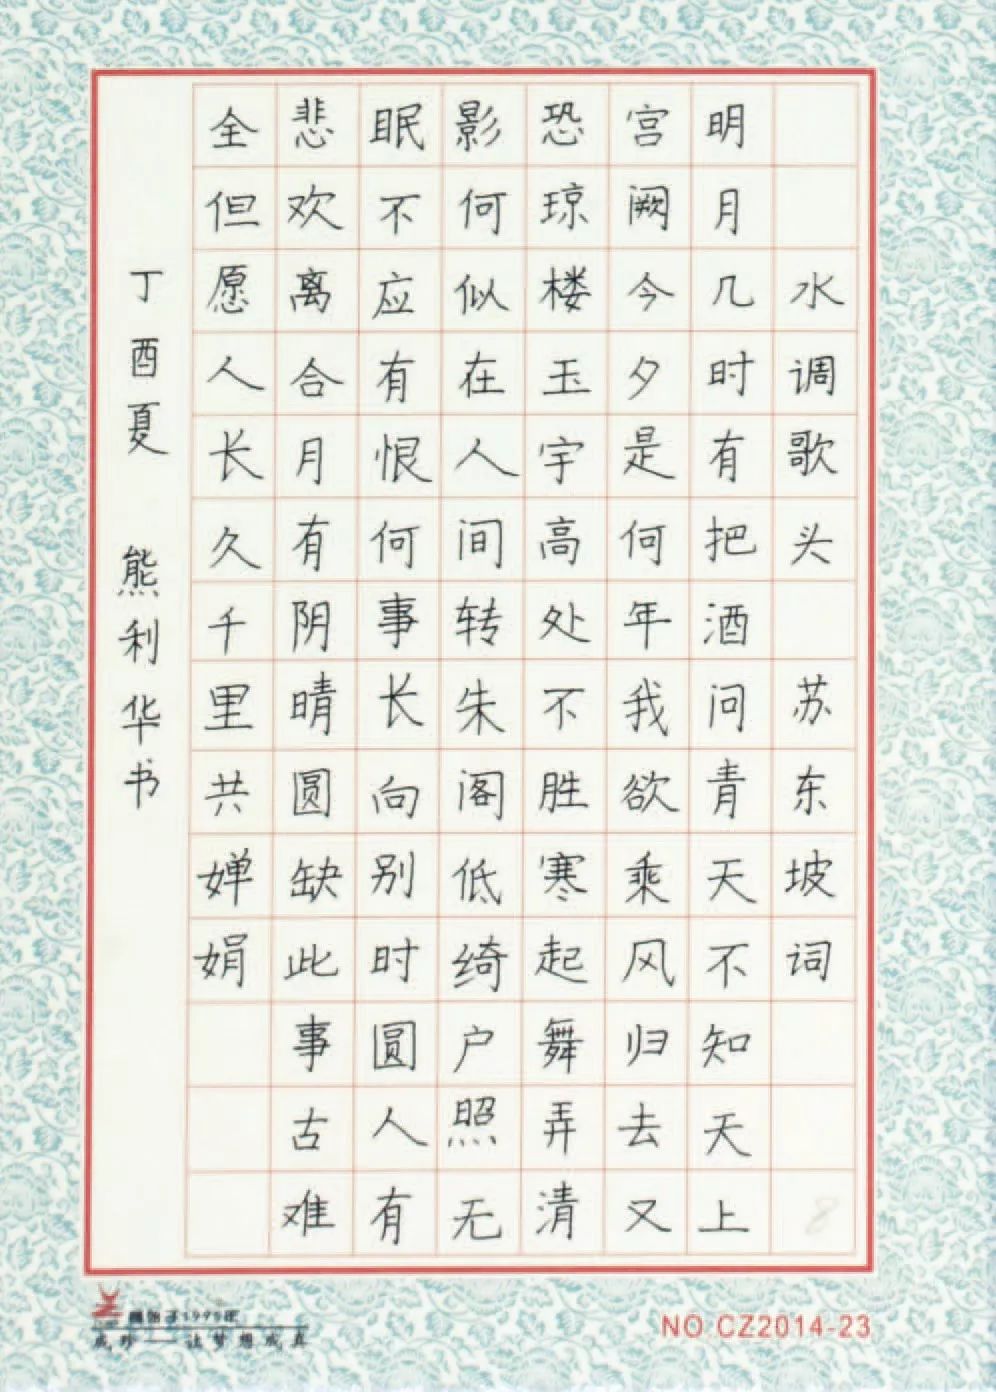 水调歌头 苏东坡词
明月几时有把酒问青天不知天上
宫阙今夕是何年我欲乘风归去又
恐琼楼玉宇高处不胜寒起舞弄清
影何似在人间转朱阁低绮户照无
眠不应有恨何事长向别时圆人有
悲欢离合月有阴晴圆缺此事古难
全但愿人长久千里共婵娟
丁酉夏 熊利华书
8
1995年
成珍——让梦想成真
NO CZ2014-23